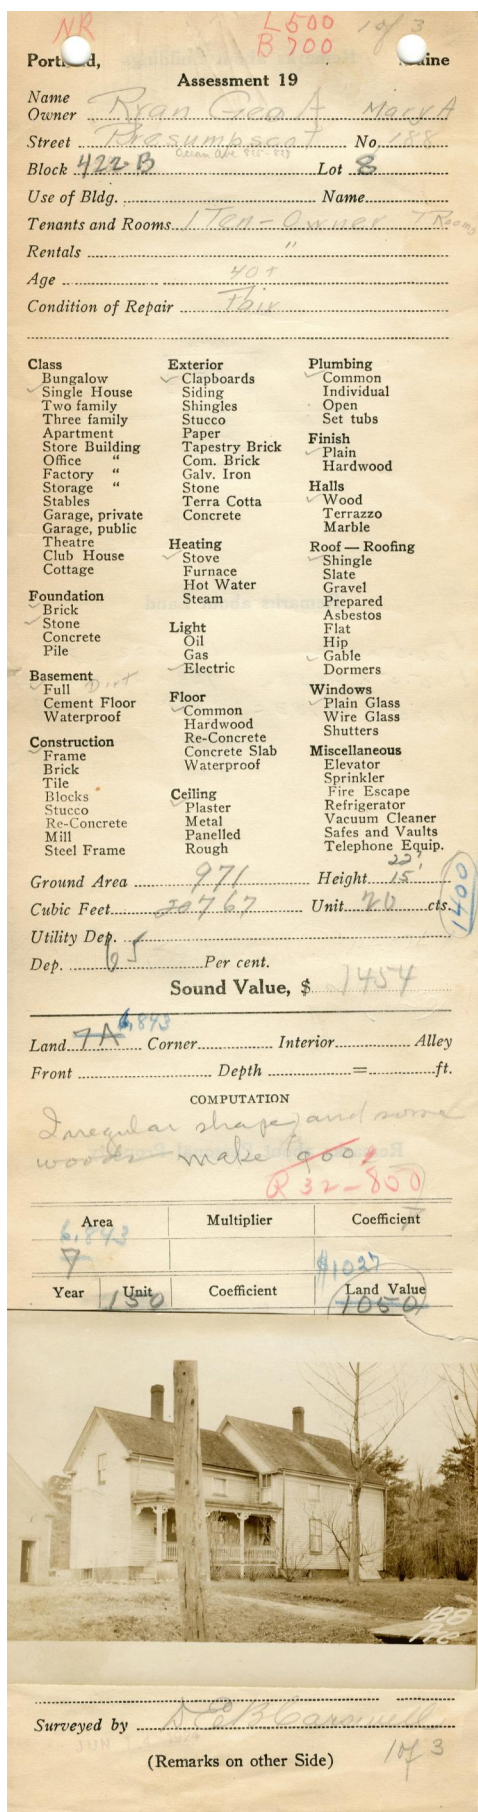 NR L 500 1 of 3
B 700
Portland, Maine
Assessment 19
Name
Owner Ryan Geo A Mary A
Street Presumpscot No. 188
Ocean Ave
Block 422 B Lot 8
Use of Bldg. Name
Tenants and Rooms 1 Ten - Owner 7 Rooms
Rentals "
Age 40+
Condition of Repair Fair
Class
Bungalow
Single House
Two family
Three family
Apartment
Store Building
Office "
Factory "
Storage "
Stables
Garage, private
Garage, public
Theatre
Club House
Cottage
Foundation
Brick
Stone
Concrete
Pile
Basement
Full Dirt
Cement Floor
Waterproof
Construction
Frame
Brick
Tile
Blocks
Stucco
Re-Concrete
Mill
Steel Frame
Exterior
Clapboards
Siding
Shingles
Stucco
Paper
Tapestry Brick
Com. Brick
Galv. Iron
Stone
Terra Cotta
Concrete
Heating
Stove
Furnace
Hot Water
Steam
Light
Oil
Gas
Electric
Floor
Common
Hardwood
Re-Concrete
Concrete Slab
Waterproof
Ceiling
Plaster
Metal
Panelled
Rough
Plumbing
Common
Individual
Open
Set tubs
Finish
Plain
Hardwood
Halls
Wood
Terrazzo
Marble
Roof — Roofing
Shingle
Slate
Gravel
Prepared
Asbestos
Flat
Hip
Gable
Dormers
Windows
Plain Glass
Wire Glass
Shutters
Miscellaneous
Elevator
Sprinkler
Fire Escape
Refrigerator
Vacuum Cleaner
Safes and Vaults
Telephone Equip.
22'
Ground Area 971 Height 15'
Cubic Feet 20767 Unit 20 cts.
1400
Utility Dep.
Dep. 65 Per cent.
Sound Value, $ 1454
6.843
Land 7A Corner Interior Alley
Front Depth = ft.
COMPUTATION
Irregular shape, and some
woods - make 900
R 32 - 800
Area Multiplier Coefficient
6.843
7
$1027
Year Unit Coefficient Land Value
150 1050
188
Pre
Surveyed by D E B Carswell
(Remarks on other Side) 1 of 3